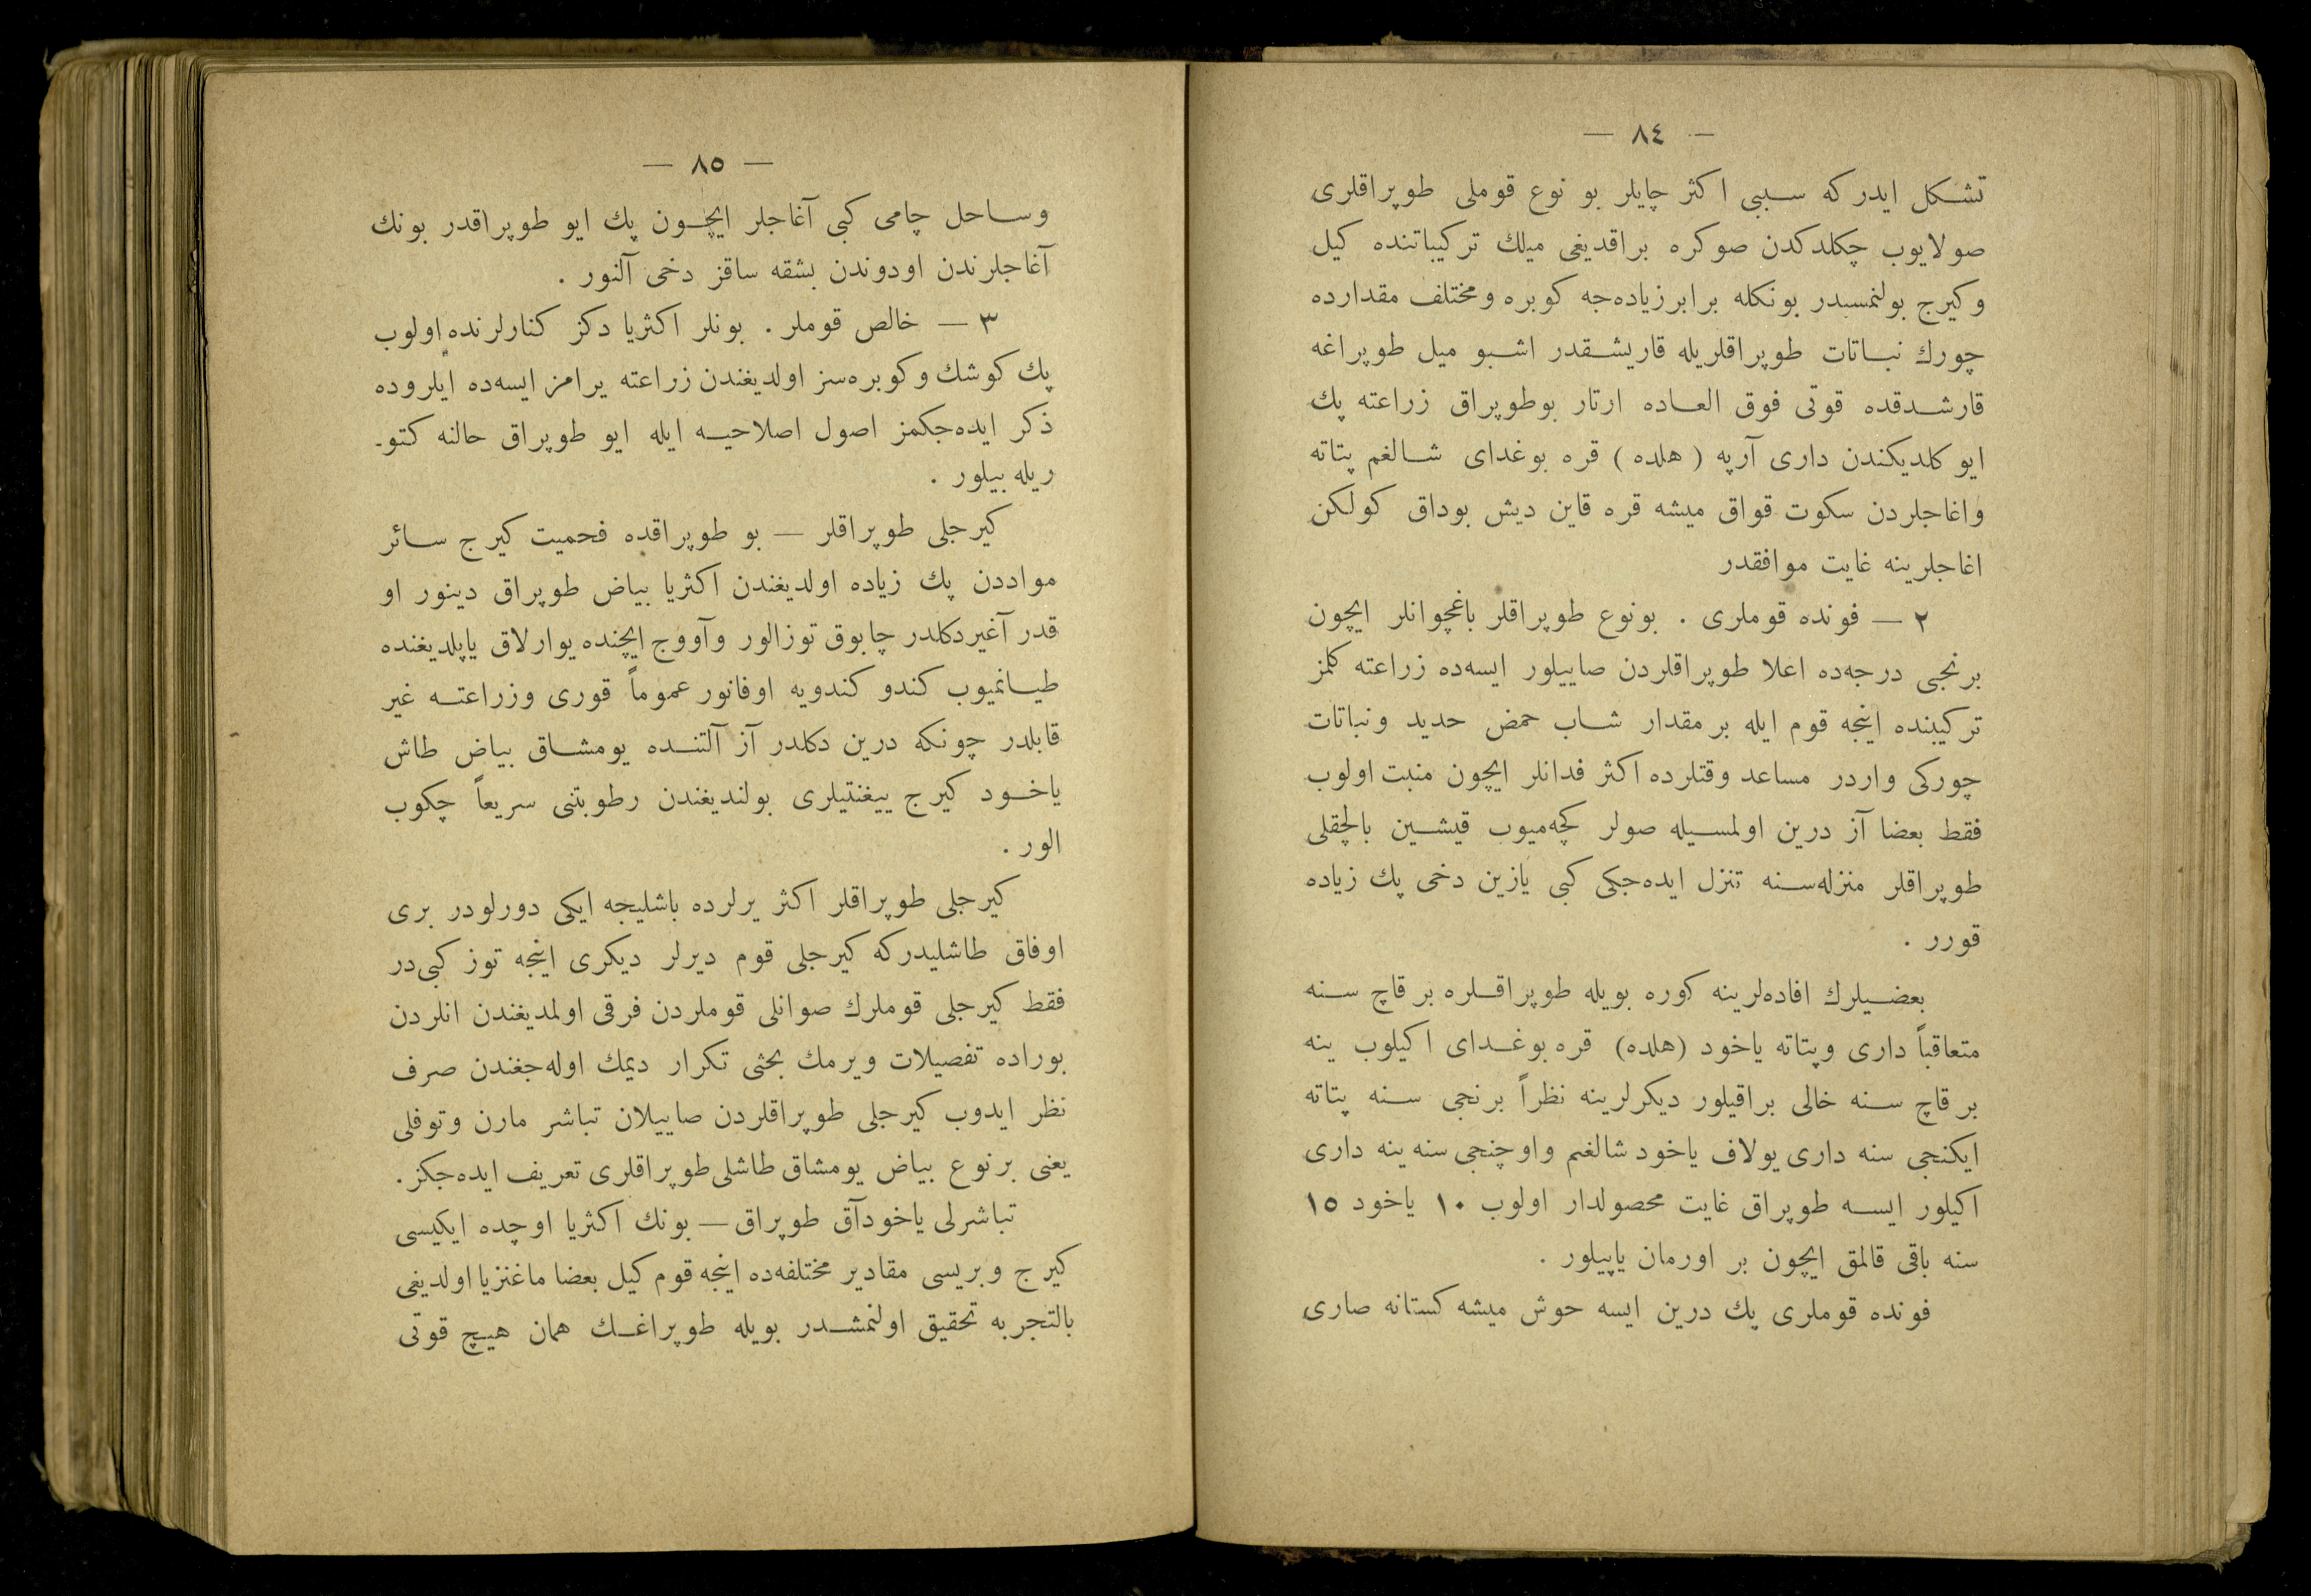 — ٨٤ —
تشكل ايدركه سببى اكثر چايلر بو نوع قوملى طوپراقلرى
صولايوب چكلدكدن صوكره براقديغى ميلك تركيباتنده كيل
وكيرج بولنمسيدر بونكله برابر زياده‌جه كوبره ومختلف مقدارده
چورك نباتات طوپراقلريله قاريشقدر اشبو ميل طوپراغه
قارشدقده قوتى فوق العاده ارتار بوطوپراق زراعته پك
ايو كلديكندن دارى آرپه ( هلده ) قره بوغداى شالغم پتاته
واغاجلردن سكوت قواق ميشه قره قاين ديش بوداق كولكن
اغاجلرينه غايت موافقدر
٢ — فونده قوملرى . بونوع طوپراقلر باغچوانلر ايچون
برنجى درجه‌ده اعلا طوپراقلردن صاييلور ايسه‌ده زراعته كلمز
تركيبنده اينجه قوم ايله بر مقدار شاب حمض حديد ونباتات
چوركى واردر مساعد وقتلرده اكثر فدانلر ايچون منبت اولوب
فقط بعضا آز درين اولمسيله صولر كچه‌ميوب قيشين بالچقلى
طوپراقلر منزله‌سنه تنزل ايده‌جكى كبى يازين دخى پك زياده
قورر .
بعضيلرك افاده‌لرينه كوره بويله طوپراقلره بر قاچ سنه
متعاقباً دارى وپتاته ياخود (هلده) قره بوغداى اكيلوب ينه
بر قاچ سنه خالى براقيلور ديكرلرينه نظراً برنجى سنه پتاته
ايكنجى سنه دارى يولاف ياخود شالغم واوچنجى سنه ينه دارى
اكيلور ايسه طوپراق غايت محصولدار اولوب ١٠ ياخود ١٥
سنه باقى قالمق ايچون بر اورمان ياپيلور .
فونده قوملرى پك درين ايسه حوش ميشه كستانه صارى
— ٨٥ —
وساحل چامى كبى آغاجلر ايچون پك ايو طوپراقدر بونك
آغاجلرندن اودوندن بشقه ساقز دخى آلنور .
٣ — خالص قوملر . بونلر اكثريا دكز كنارلرنده اولوب
پك كوشك وكوبره‌سز اولديغندن زراعته يرامز ايسه‌ده ايلروده
ذكر ايده‌جكمز اصول اصلاحيه ايله ايو طوپراق حالنه كتو-
ريله بيلور .
كيرجلى طوپراقلر — بو طوپراقده فحميت كيرج سائر
موادندن پك زياده اولديغندن اكثريا بياض طوپراق دينور او
قدر آغير دكلدر چابوق توزالور وآووج ايچنده يوارلاق ياپلديغنده
طيانميوب كندو كندويه اوفانور عموماً قورى وزراعته غير
قابلدر چونكه درين دكلدر آز آلتنده يومشاق بياض طاش
ياخود كيرج ييغنتيلرى بولنديغندن رطوبتنى سريعاً چكوب
الور .
كيرجلى طوپراقلر اكثر يرلرده باشليجه ايكى دورلودر برى
اوفاق طاشليدركه كيرجلى قوم ديرلر ديكرى اينجه توز كبى‌در
فقط كيرجلى قوملرك صوانلى قوملردن فرقى اولمديغندن انلردن
بوراده تفصيلات ويرمك بحثى تكرار ديمك اوله‌جغندن صرف
نظر ايدوب كيرجلى طوپراقلردن صاييلان تباشر مارن وتوفلى
يعنى بر نوع بياض يومشاق طاشلى طوپراقلرى تعريف ايده‌جكز .
تباشرلى ياخود آق طوپراق — بونك اكثريا اوچده ايكيسى
كيرج وبريسى مقادير مختلفه‌ده اينجه قوم كيل بعضا ماغنزيا اولديغى
بالتجربه تحقيق اولنمشدر بويله طوپراغك همان هيچ قوتى